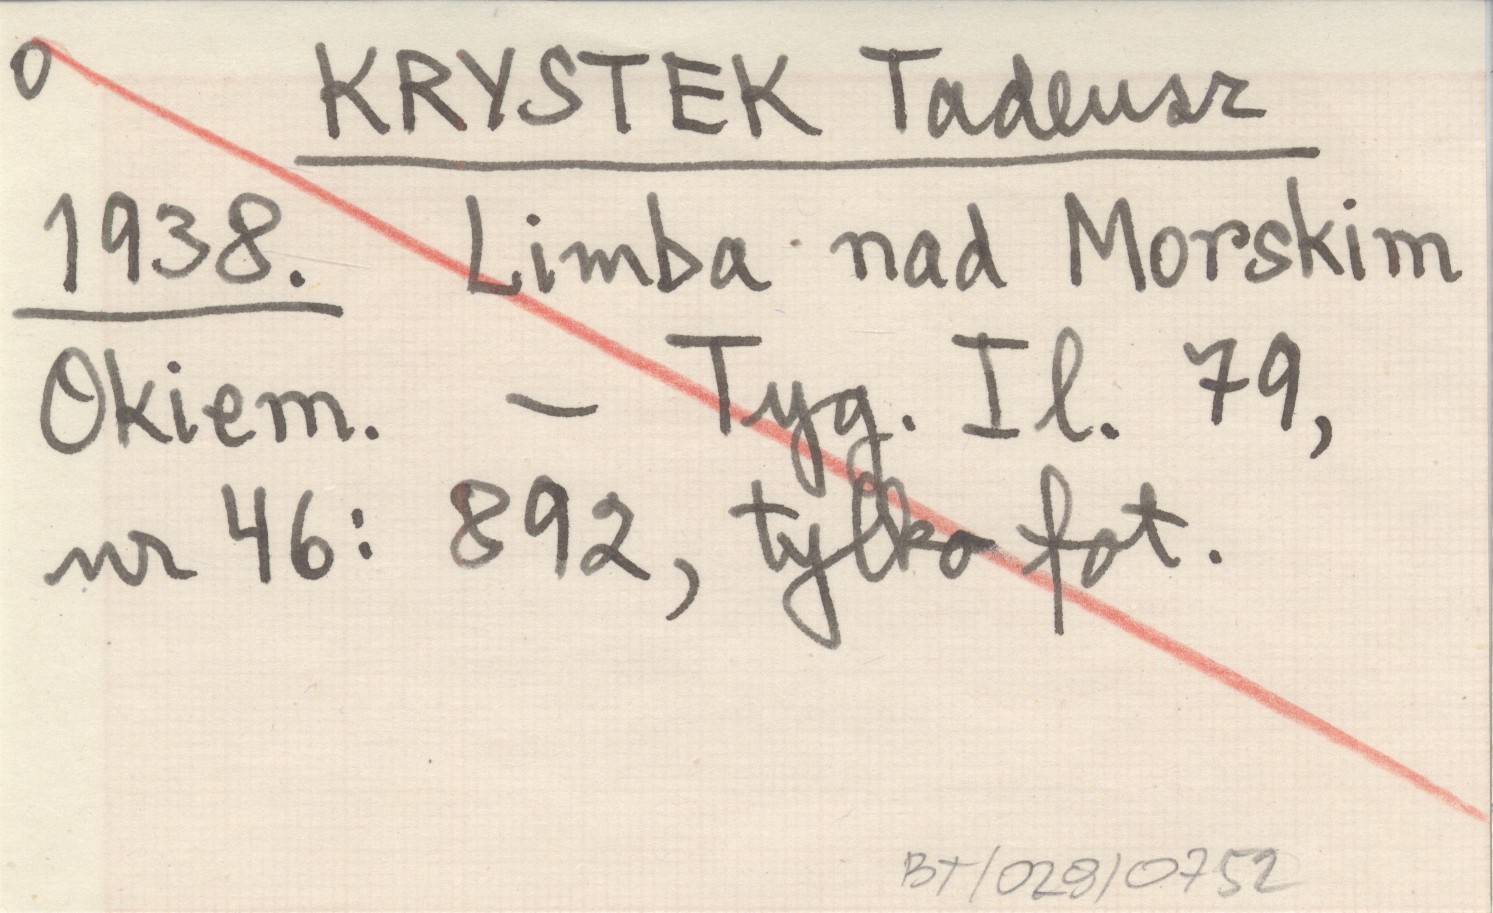 0 KRYSTEK Tadeusz
1938. Limba nad Morskim
Okiem. – Tyg. Il. 79,
nr 46: 892, tylko fot.
BT/028/0752